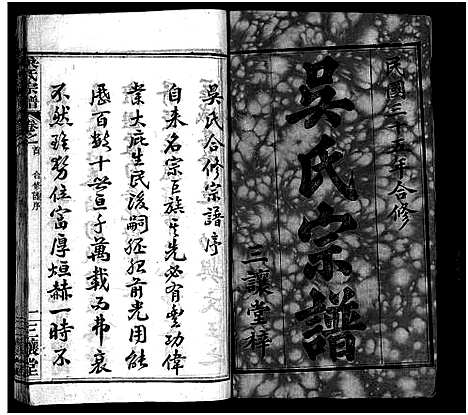 民國三十五年合修
吳氏宗譜
三讓堂梓
吳氏合修宗譜序
自来名宗巨族其先必有豐功偉
業大庇生民後嗣征祀前光用能
歷百數十世亘千萬載而弗衰
不然雖勢位富厚烜赫一時不
吳氏宗譜
卷之首
合修譜序
一
三讓堂